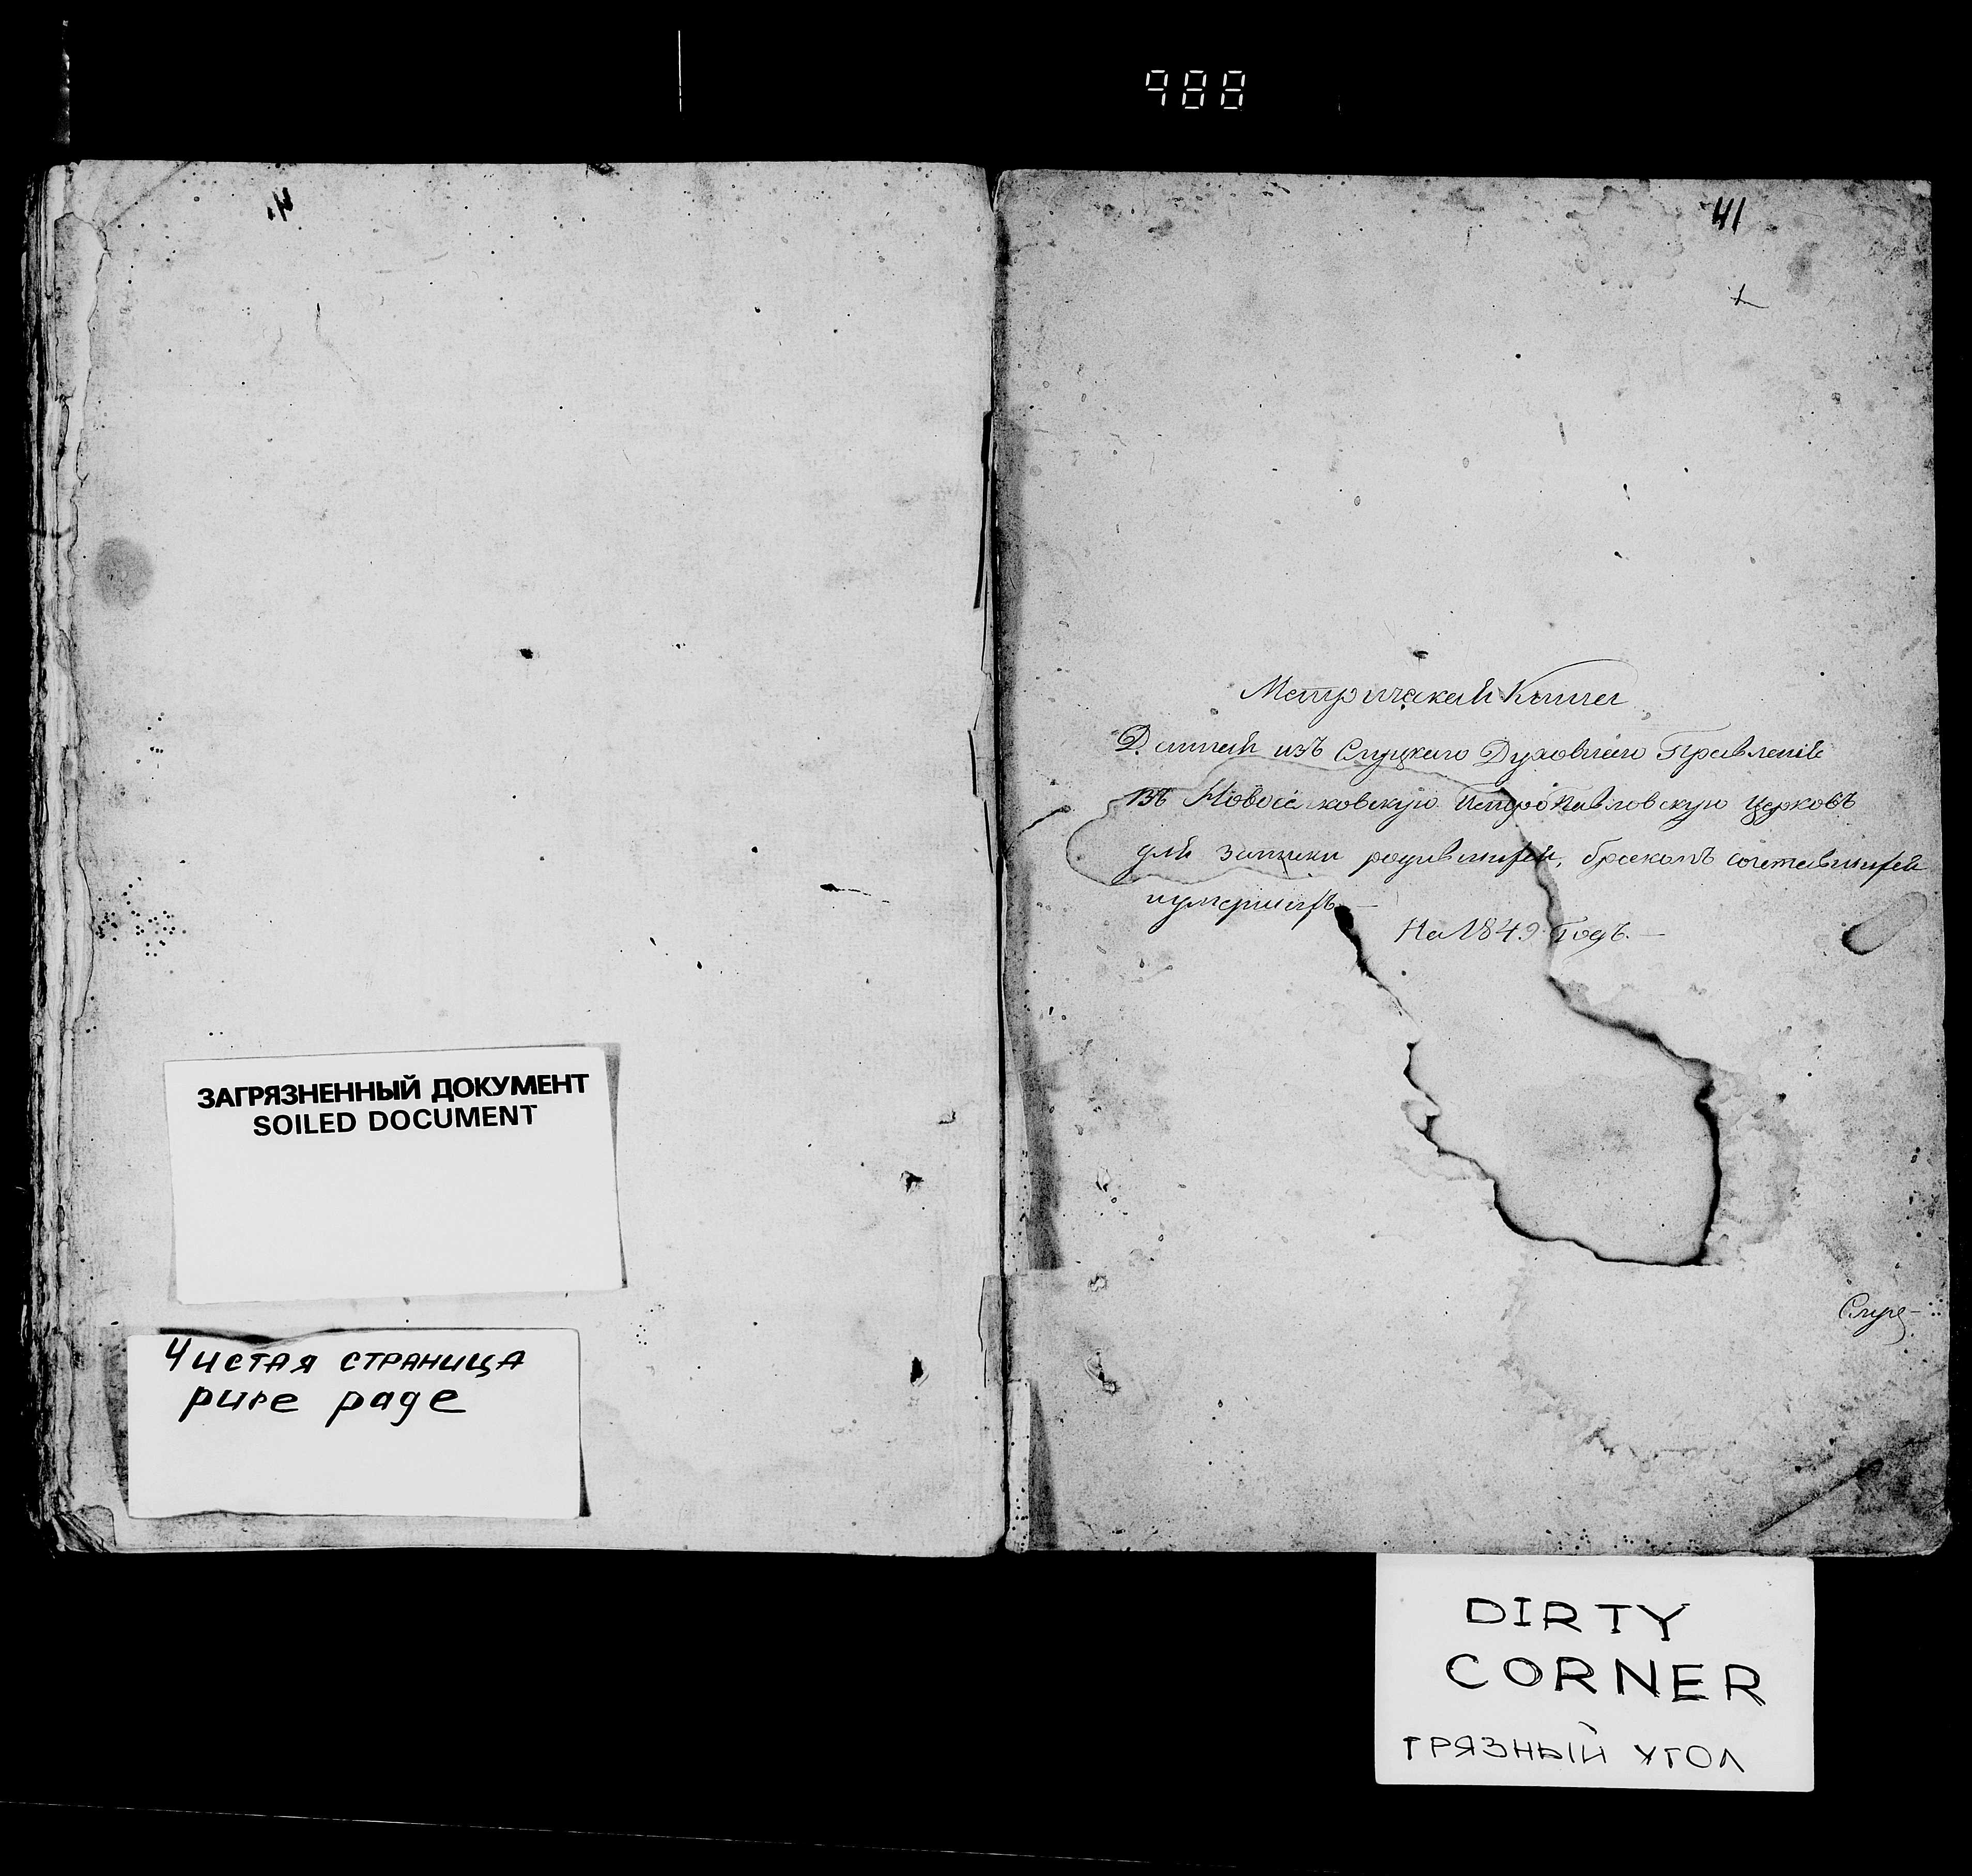 988
41
Метрическая Книга
Данная изъ Слуцкаго Духовнаго Правленія
въ Новосёлковскую Петропавловскую церковь
для записки родившихся, бракомъ сочетавшихся
и умершихъ. —
На 1849 Годъ. —
Слуц-
ЗАГРЯЗНЕННЫЙ ДОКУМЕНТ
SOILED DOCUMENT
Чистая страница
pure page
DIRTY
CORNER
ГРЯЗНЫЙ УГОЛ